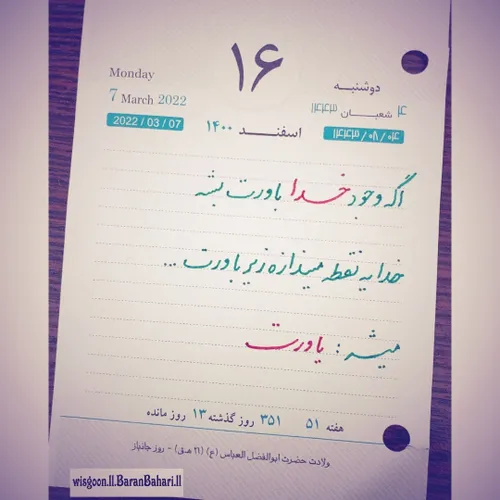 ۱۶
Monday
دوشنبه
7 March 2022
۴ شعبان ۱۴۴۳
2022 / 03 / 07
اسفند ۱۴۰۰
۱۴۴۳ / ۰۸ / ۰۴
اگه وجود خدا باورت بشه
خدا یه نقطه میندازه زیر باورت ...
میشه : یاورت
هفته ۵۱ ۳۵۱ روز گذشته ۱۳ روز مانده
ولادت حضرت ابوالفضل العباس (ع) (۲۶ ه.ق) - روز جانباز
wisgoon.ll.BaranBahari.ll